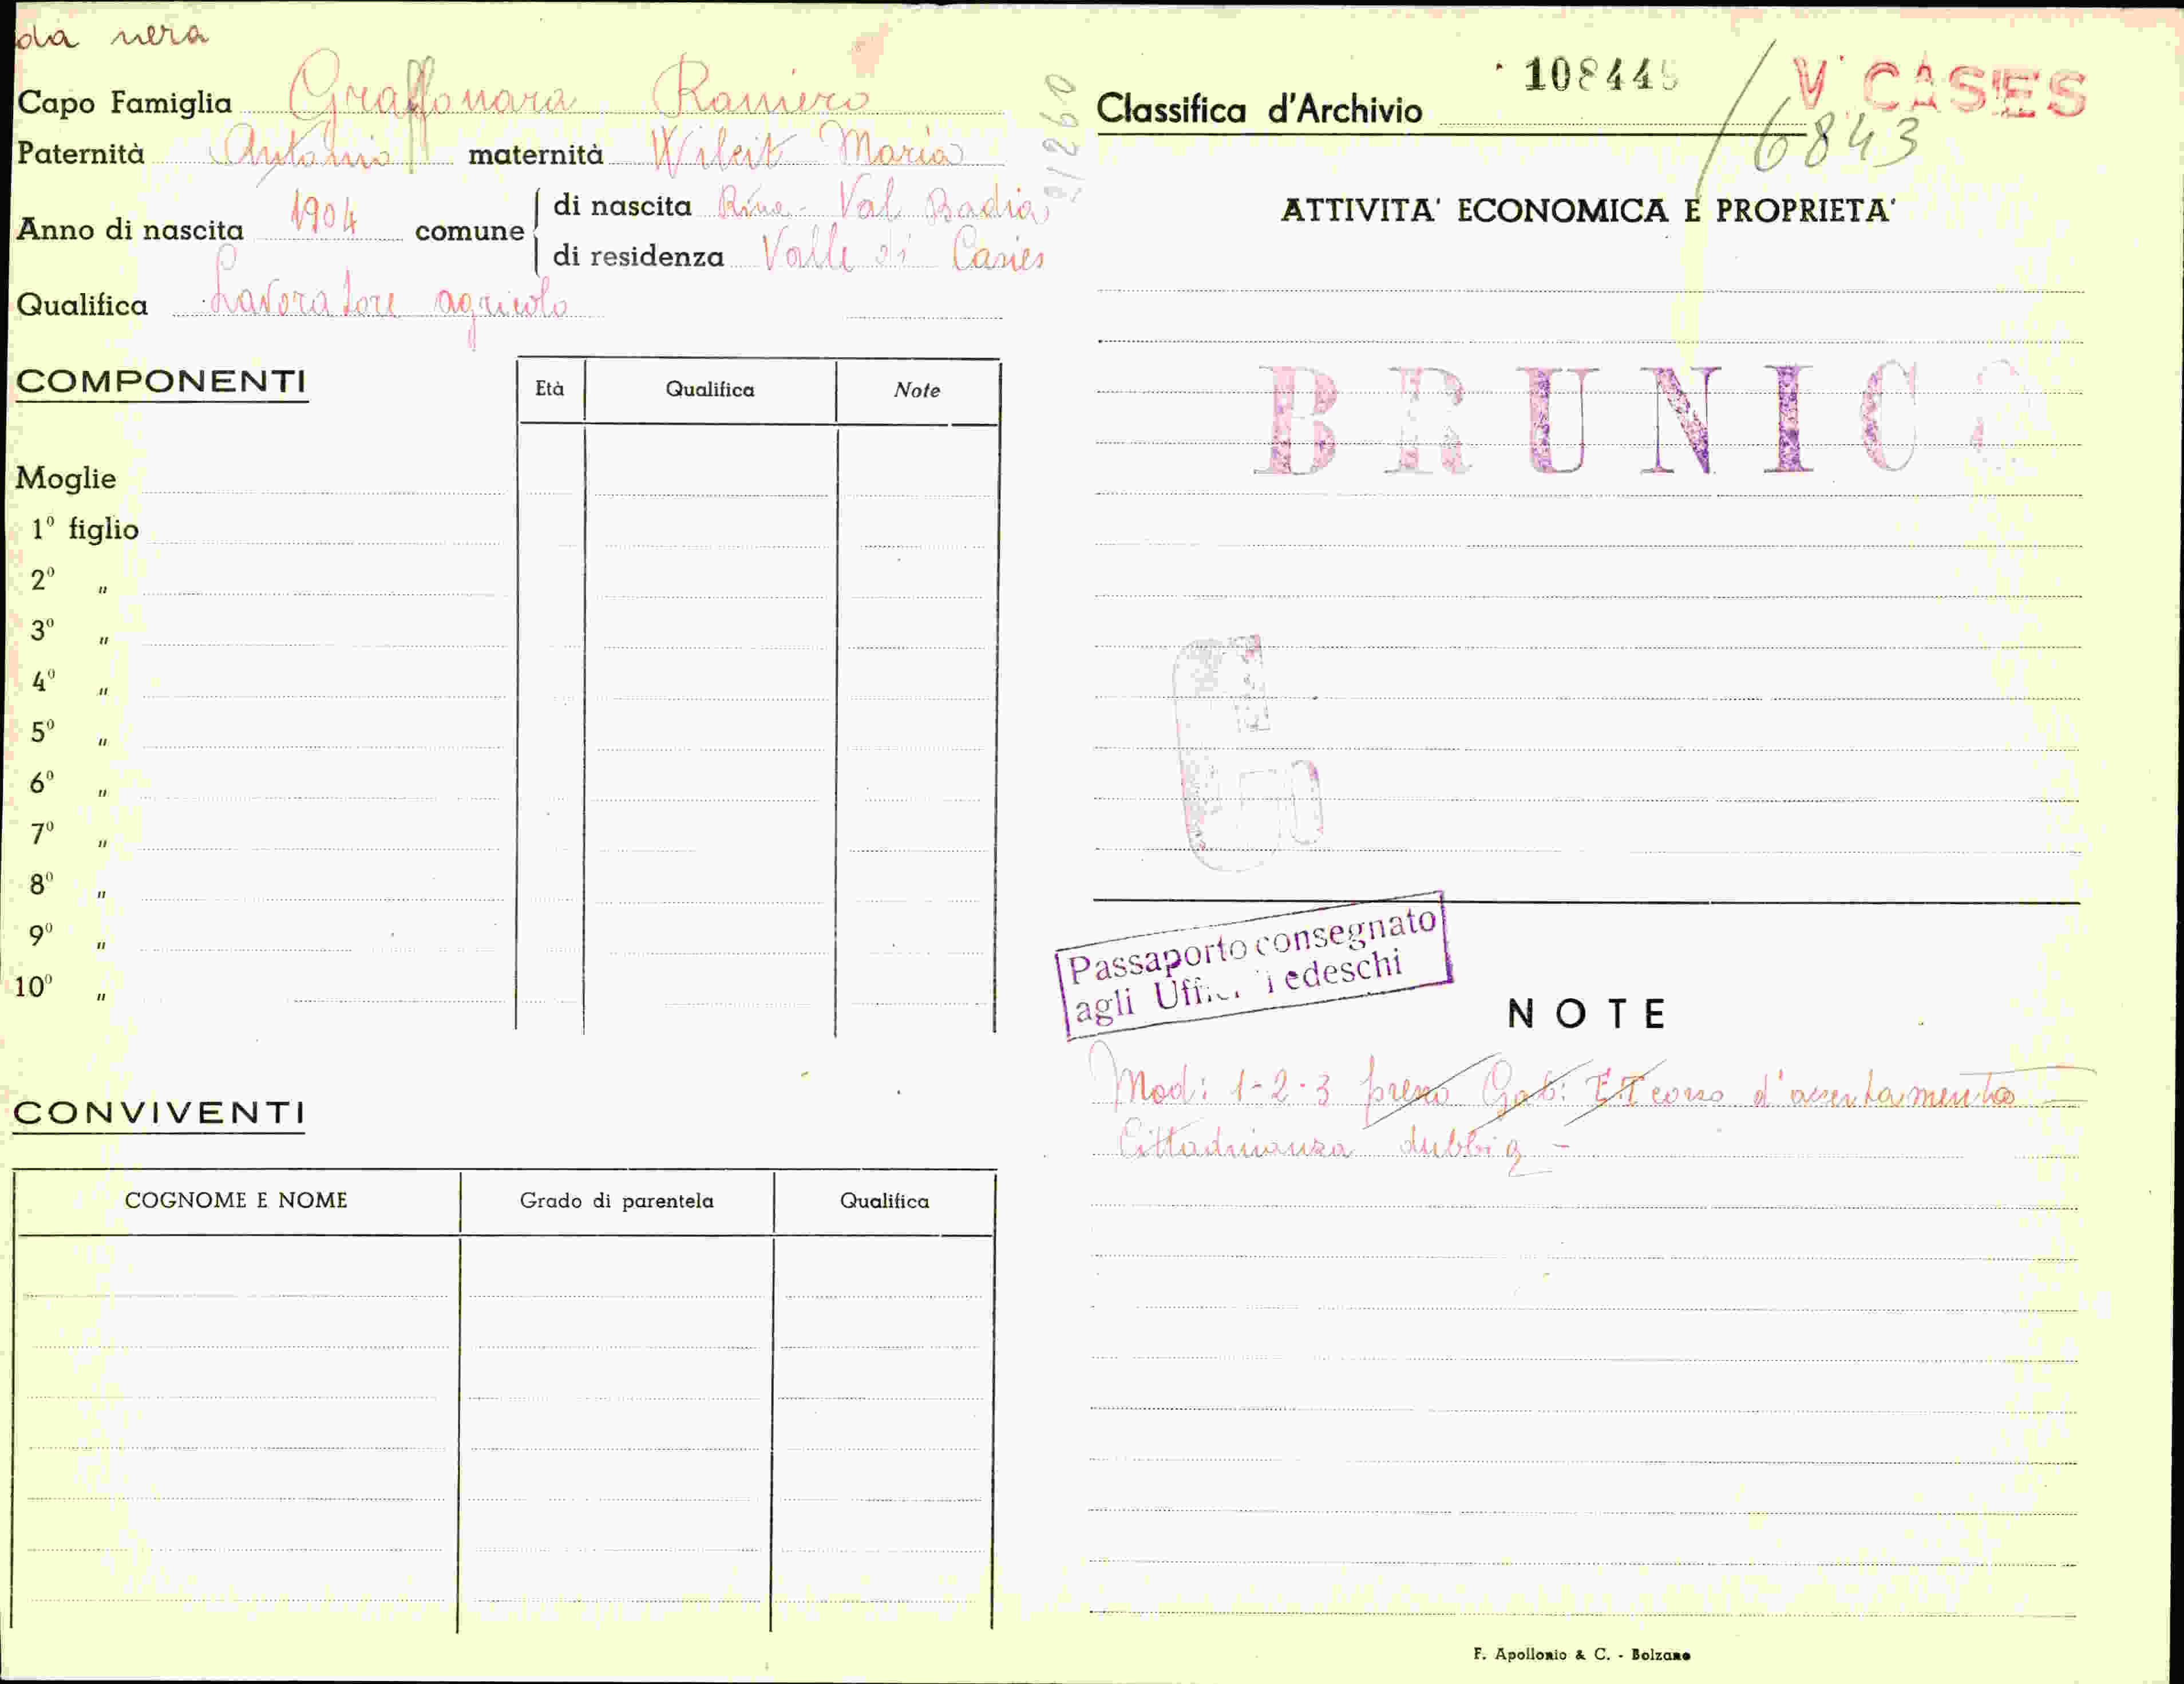 da nera
Capo Famiglia Graffonara Raniero
Paternità Antonio maternità Wileit Maria
Anno di nascita 1904 comune
di nascita Rina - Val Badia
di residenza Valle di Casies
Qualifica Lavoratore agricolo
COMPONENTI
Età Qualifica Note
Moglie
1º figlio
2º "
3º "
4º "
5º "
6º "
7º "
8º "
9º "
10º "
CONVIVENTI
COGNOME E NOME Grado di parentela Qualifica
108445
V. CASES
Classifica d'Archivio
/6843
ATTIVITA' ECONOMICA E PROPRIETA'
BRUNIC
Passaporto consegnato
agli Uffici Tedeschi
NOTE
Mod: 1-2-3 presso Gab: E.T corso d'accertamento
Cittadinanza dubbia -
F. Apollonio & C. - Bolzano